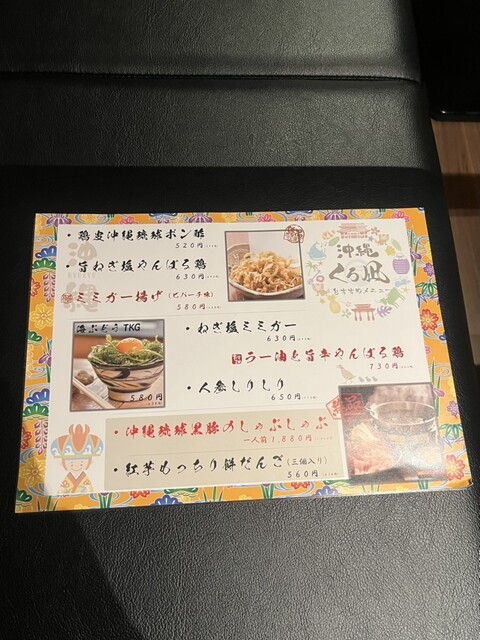 ・鶏皮沖縄琉球ポン酢
520円
・旨ねぎ塩やんばる鶏
630円
ミミガー揚げ (ピパーチ味)
580円
沖縄
くろ凪
おすすめメニュー
海ぶどうTKG
580円
・ねぎ塩ミミガー
630円
ラー油 旨辛やんばる鶏
730円
・人参しりしり
650円
・沖縄琉球黒豚のしゃぶしゃぶ
一人前1,880円
・紅芋もっちり餅だんご (三個入り)
560円